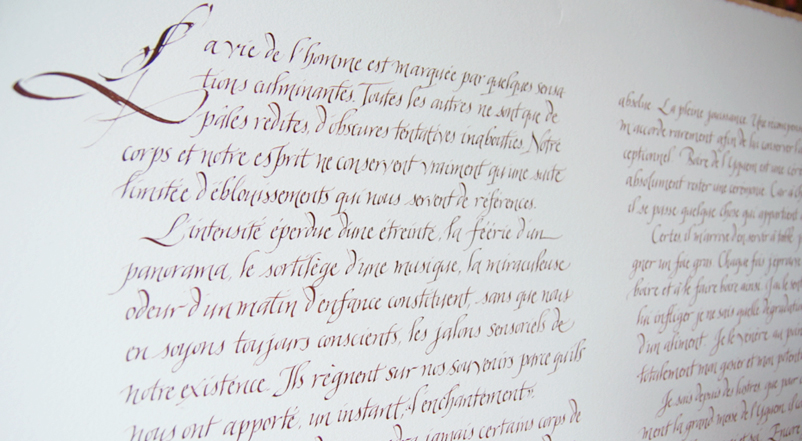 La vie de l'homme est marquée par quelques sensa
tions culminantes. Toutes les autres ne sont que de
pâles redites, d'obscures tentatives inabouties. Notre
corps et notre esprit ne conservent vraiment qu'une suite
limitée d'éblouissements qui nous servent de références.
L'intensité éperdue d'une étreinte, la féérie d'un
panorama, le sortilège d'une musique, la miraculeuse
odeur d'un matin d'enfance constituent, sans que nous
en soyons toujours conscients, les jalons sensoriels de
notre existence. Ils règnent sur nos souvenirs parce qu'ils
nous ont apporté, un instant, l'enchantement.
jamais certains corps de
absolue. La pleine jouissance. Une
m'accorde rarement afin de lui conserver
ceptionnel. Boire de l'Yquem est une
absolument rester une cérémonie. Car à
il se passe quelque chose qui appartient
Certes, il m'arrive d'en servir à table,
gner un foie gras. Chaque fois j'éprouve
boire et à le faire boire ainsi.
lui infliger je ne sais quelle dégradation
d'un aliment. Je le vénère au point
totalement mon gosier et mon
Je sais depuis des lustres, que par
ment la grand messe de l'Yquem, il
Encore